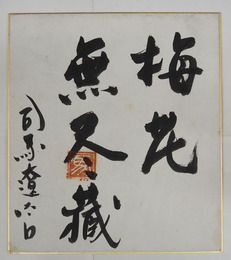 梅花
無尽蔵
司馬遼太郎